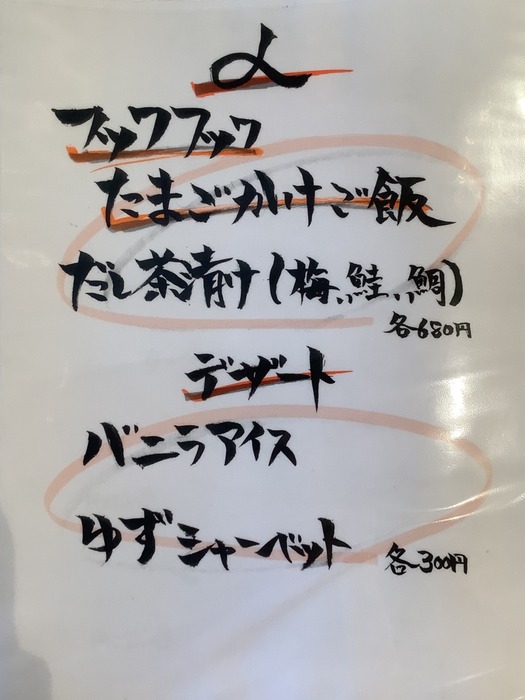 〆
ブックブック
たまごかけご飯
だし茶漬け(梅、鮭、鯛)
各680円
デザート
バニラアイス
ゆずシャーベット
各300円